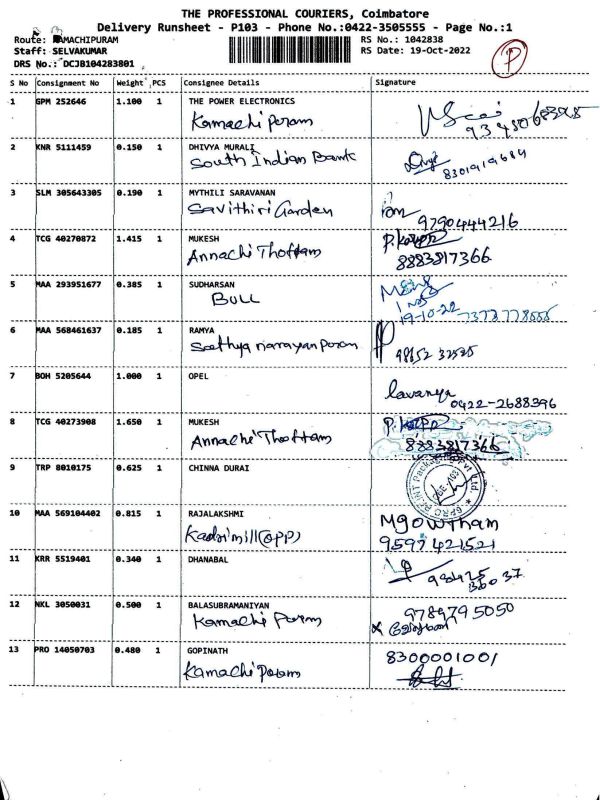 THE PROFESSIONAL COURIERS, Coimbatore
Delivery Runsheet - P103 - Phone No.:0422-3505555 - Page No.:1
Route: RAMACHIPURAM
RS No.: 1042838
Staff: SELVAKUMAR
RS Date: 19-Oct-2022
DRS No.: DCJB104283801
P
S No Consignment No Weight PCS Consignee Details Signature
1 GPM 252646 1.100 1 THE POWER ELECTRONICS
Kamachi puram
2 KNR 5111459 0.150 1 DHIVYA MURALI
South Indian Bank
8301919684
3 SLM 305643305 0.190 1 MYTHILI SARAVANAN
Savithiri Garden
9790444216
4 TCG 40270872 1.415 1 MUKESH
Annachi Thottam
8883817366
5 MAA 293951677 0.385 1 SUDHARSAN
BULL
19-10-22 7373778555
6 MAA 568461637 0.185 1 RAMYA
Sathya narrayan puram
7 BOH 5205644 1.000 1 OPEL
Lavanya
0422-2688396
8 TCG 40273908 1.650 1 MUKESH
Annachi Thottam
8883817366
9 TRP 8010175 0.625 1 CHINNA DURAI
10 MAA 569104402 0.815 1 RAJALAKSHMI
Kadri mill (opp)
M Gowtham
9597421521
11 KRR 5519401 0.340 1 DHANABAL
12 NKL 3050031 0.500 1 BALASUBRAMANIYAN
Kamachi Puram
9789795050
13 PRO 14050703 0.480 1 GOPINATH
Kamachi Puram
8300001001